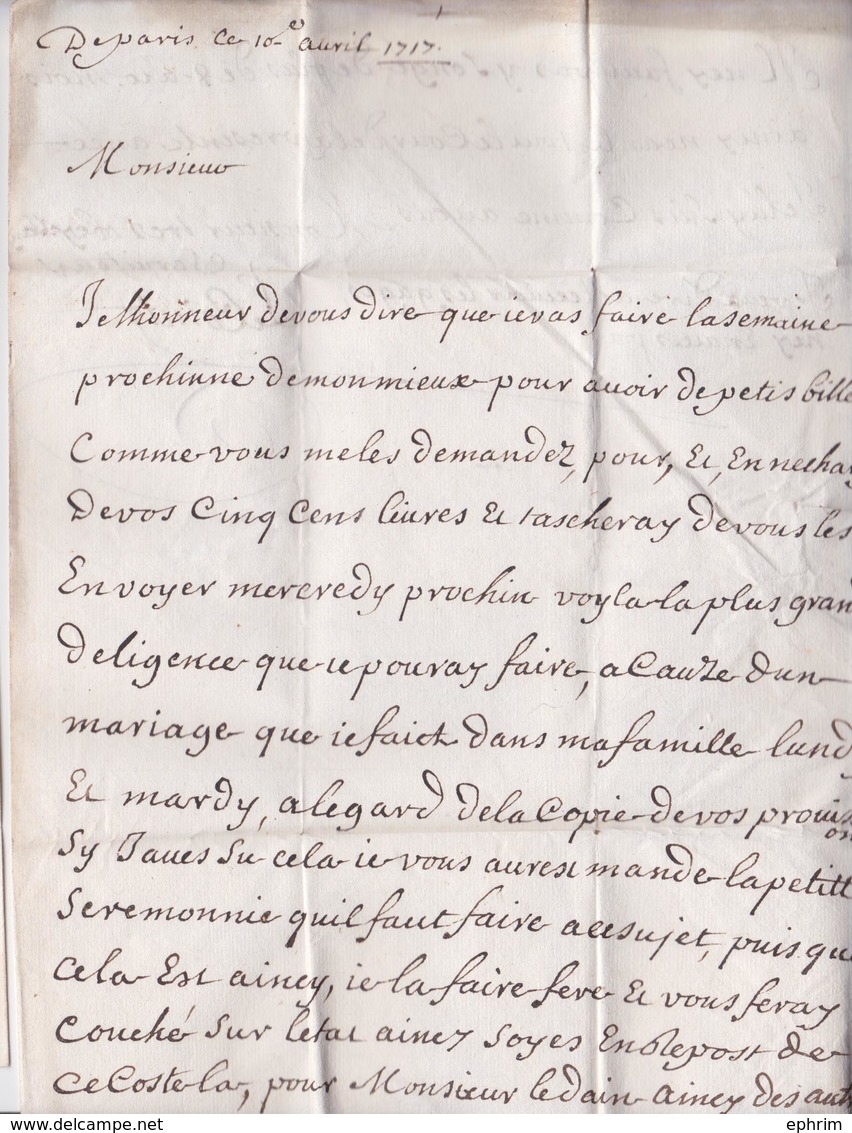 De paris ce 10e auril 1717.
Monsieur
Je lhonneur de vous dire que ie vas faire la semaine
prochinne de mon mieux pour auoir de petis bille
Comme vous me les demandez, pour, Et, En
De vos Cinq Cens liures Et tascheray de vous les
En voyer mercredy prochin voyla la plus gran
deligence que ie pouray faire, a Cauze dun
mariage que ie faict dans ma famille lundy
Et mardy, a legard de la Copie de vos prouis
on
Sy Jaues Su cela ie vous aurest mande la petitt
Seremonnie quil faut faire a ce sujet, puis que
cela Est ainey, ie la faire fere Et vous feray
Couché Sur letat ainez Soyes En Repost de
Ce Coste la, pour Monsieur ledain ainey des aut
ephrim